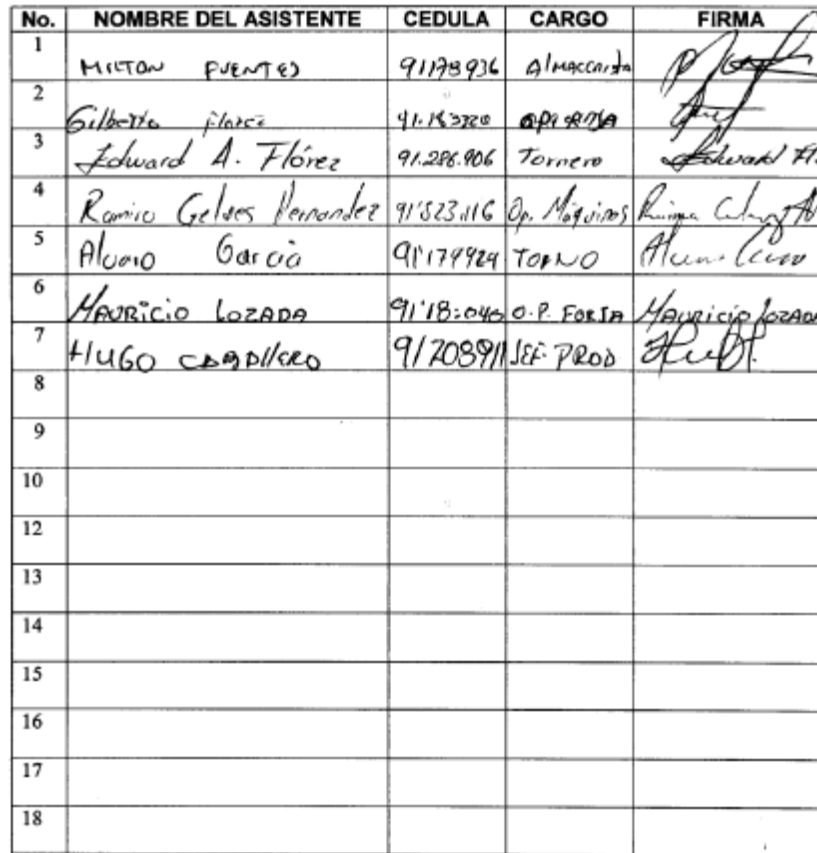 No. NOMBRE DEL ASISTENTE CEDULA CARGO FIRMA
1 MILTON FUENTES 91178936 Almacenista
2 Gilberto Florez
3 Edward A. Flórez 91.286.906 Tornero Edward Fl
4 Ramiro Gelves Hernandez 91'523.116 Op. Máquinas
5 Alvaro García 91'179924 TORNO
6 MAURICIO LOZADA O.P. FORJA MAURICIO LOZADA
7 HUGO 91208911 JEF. PROD
8
9
10
12
13
14
15
16
17
18